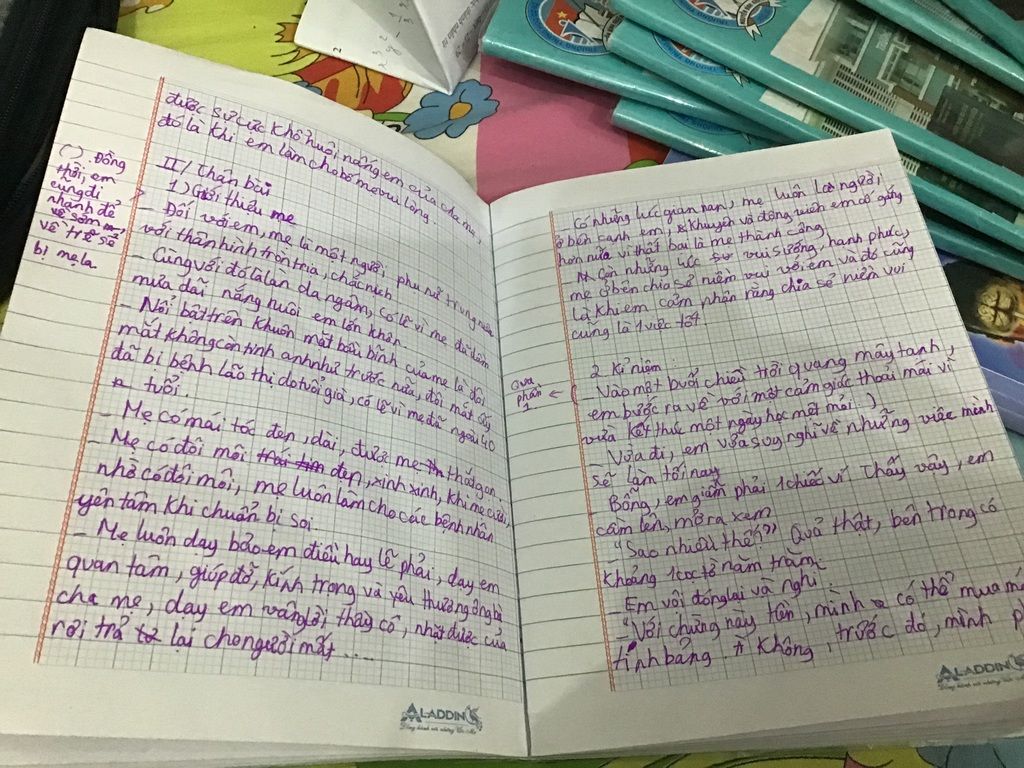 được sự cực khổ nuôi nấng em của cha mẹ,
đó là khi em làm cho bố mẹ vui lòng
II/ Thân bài
1) Giới thiệu mẹ
- Đối với em, mẹ là một người phụ nữ trung niên
với thân hình tròn trịa, chắc nịch
- Cùng với đó là làn da ngăm, có lẽ vì mẹ đã dầm
mưa dãi nắng nuôi em lớn khôn
- Nổi bật trên khuôn mặt bầu bĩnh của mẹ là đôi
mắt không còn tinh anh như trước nữa, đôi mắt ấy
đã bị bệnh lão thị do tuổi già, có lẽ vì mẹ đã ngoài 40
tuổi.
- Mẹ có mái tóc đen, dài, được mẹ thắt gọn
- Mẹ có đôi môi đẹp, xinh xinh, khi mẹ cười,
nhờ có đôi môi, mẹ luôn làm cho các bệnh nhân
yên tâm khi chuẩn bị soi
- Mẹ luôn dạy bảo em điều hay lẽ phải, dạy em
quan tâm, giúp đỡ, kính trọng và yêu thương ông bà
cha mẹ, dạy em vâng lời thầy cô, nhặt được của
rơi trả lại cho người mất....
( ) . Đồng
thời, em
cũng đi
nhanh để
về sớm
về trễ sẽ
bị mẹ la
ALADDIN
- Có những lúc gian nan, mẹ luôn là người
ở bên cạnh em, khuyên và động viên em cố gắng
hơn nữa vì thất bại là mẹ thành công
- Còn những lúc vui sướng, hạnh phúc,
mẹ ở bên chia sẻ niềm vui với em và đó cũng
là khi em cảm nhận rằng chia sẻ niềm vui
cũng là 1 việc tốt.
2. Kỉ niệm:
Qua
phần
1.
- Vào một buổi chiều trời quang mây tạnh,
em bước ra về với một cảm giác thoải mái vì
vừa kết thúc một ngày học mệt mỏi )
- Vừa đi, em vừa suy nghĩ về những việc mình
sẽ làm tối nay
- Bỗng, em giẫm phải 1 chiếc ví. Thấy vậy, em
cầm lên, mở ra xem
- "Sao nhiều thế?" Quả thật, bên trong có
khoảng tờ năm trăm
- Em vội đóng lại và nghĩ:
- "Với chừng này tiền, mình có thể mua
tính bảng. Không, trước đó, mình
ALADDIN